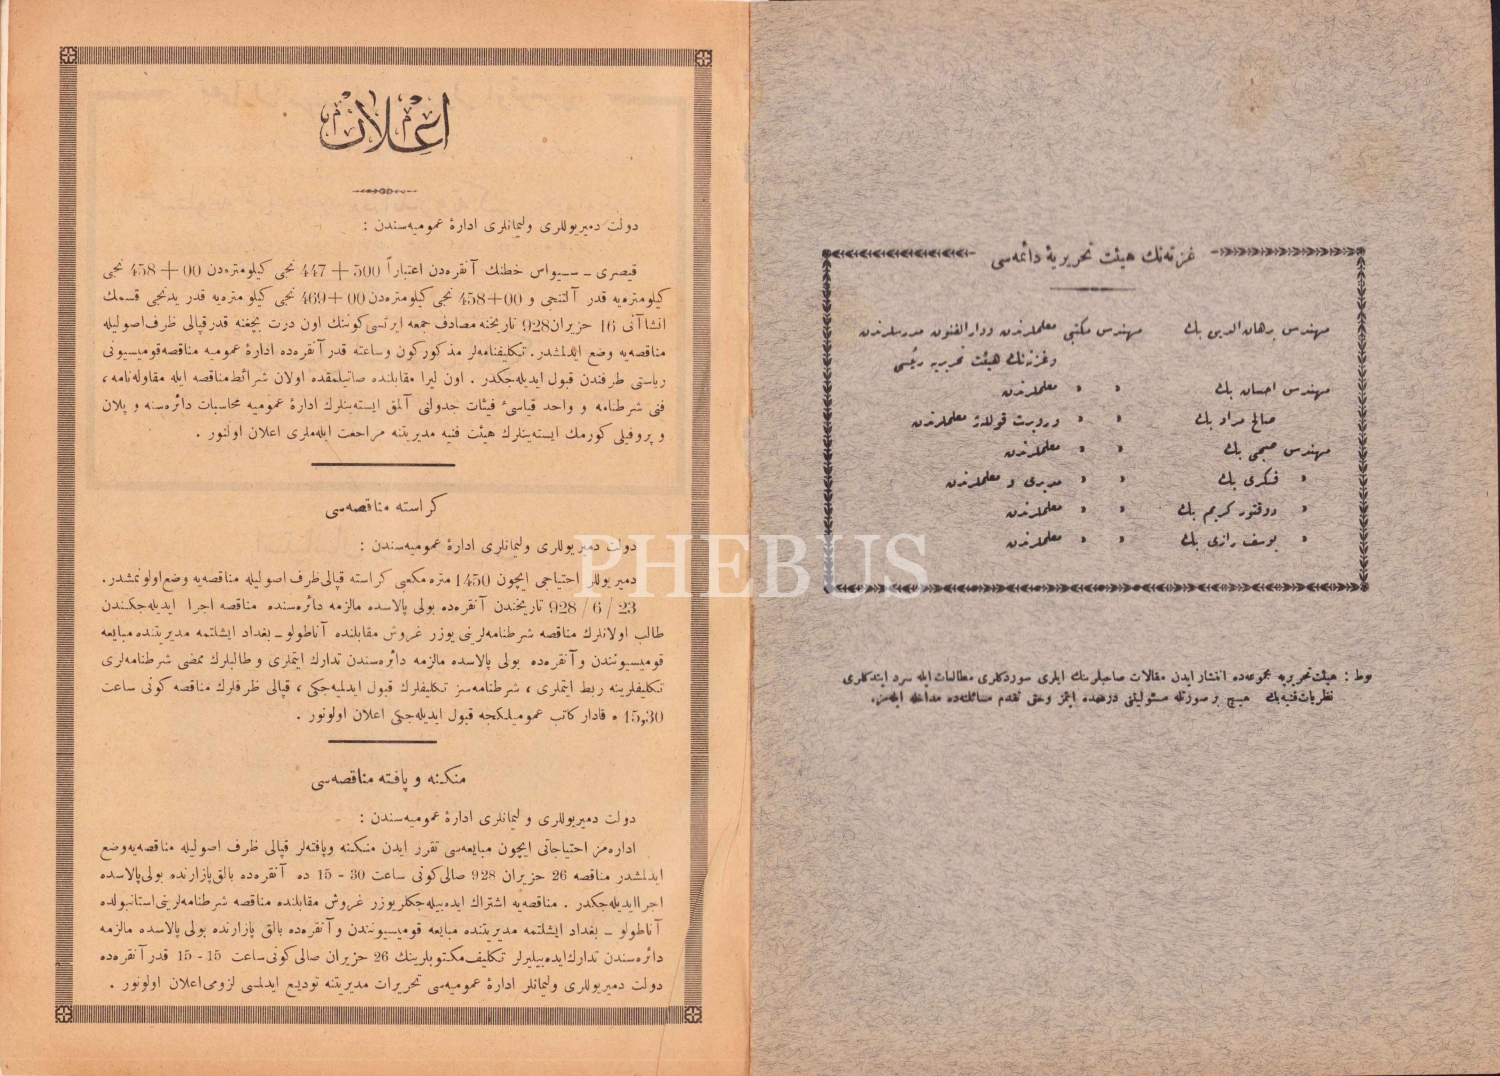 اعلان
دولت دمیریوللری ولیمانلری ادارهٔ عمومیه‌سندن :
قیصری ـ سیواس خطنك آنقره‌دن اعتباراً 500 + 447 نجی کیلومتره‌دن 00 + 458 نجی
کیلومتره‌یه قدر آلتنجی و 00+458 نجی کیلومتره‌دن 00+469 نجی کیلو متره‌یه قدر یدنجی قسمك
انشاآتی 16 حزیران 928 تاریخنه مصادف جمعه ایرتسی کوننك اون درت بچغنه قدر قپالی ظرف اصولیله
مناقصه‌یه وضع ایدلمشدر. تکلیفنامه‌لر مذکور کون وساعته قدر آنقره‌ده ادارهٔ عمومیه مناقصه قومیسیونی
ریاستی طرفندن قبول ایدیله‌جکدر . اون لیرا مقابلنده صاتیلمقده اولان شرائط مناقصه ایله مقاوله‌نامه ،
فنی شرطنامه و واحد قیاسیٔ فیئات جدولنی آلمق ایسته‌ینلرك ادارهٔ عمومیه محاسبات دائره‌سنه و پلان
و پروفیلی کورمك ایسته‌ینلرك هیئت فنیه مدیریتنه مراجعت ایله‌ملری اعلان اولنور .
کراسته مناقصه‌سی
دولت دمیریوللری ولیمانلری ادارهٔ عمومیه‌سندن :
دمیریوللر احتیاجی ایچون 1450 متره مکعبی کراسته قپالی ظرف اصولیله مناقصه‌یه وضع اولونمشدر.
23 / 6 / 928 تاریخندن آنقره‌ده بولی پالاسده مالزمه دائره‌سنده مناقصه اجرا ایدیله‌جکندن
طالب اولانلرك مناقصه شرطنامه‌لرنی یوزر غروش مقابلنده آناطولو ـ بغداد ایشلتمه مدیریتنده مبایعه
قومیسیونندن و آنقره‌ده بولی پالاسده مالزمه دائره‌سندن تدارك ایتملری و طالبلرك ممضی شرطنامه‌لری
تکلیفلرینه ربط ایتملری ، شرطنامه‌سز تکلیفلرك قبول ایدلمیه‌جکی ، قپالی ظرفلرك مناقصه کونی ساعت
15,30 ه قادار کاتب عمومیلکجه قبول ایدیله‌جکی اعلان اولونور .
منکنه و پافته مناقصه‌سی
دولت دمیریوللری و لیمانلری ادارهٔ عمومیه‌سندن :
اداره‌مز احتیاجاتی ایچون مبایعه‌سی تقرر ایدن منکنه وپافته‌لر قپالی ظرف اصولیله مناقصه‌یه وضع
ایدلمشدر مناقصه 26 حزیران 928 صالی کونی ساعت 30 - 15 ده آنقره‌ده بالق پازارنده بولی پالاسده
اجرا ایدیله‌جکدر . مناقصه‌یه اشتراك ایده‌بیله‌جکلر یوزر غروش مقابلنده مناقصه شرطنامه‌لرینی استانبولده
آناطولو ـ بغداد ایشلتمه مدیریتنده مبایعه قومیسیونندن و آنقره‌ده بالق پازارنده بولی پالاسده مالزمه
دائره‌سندن تدارك ایده‌بیلیرلر تکلیف مکتوبلرینك 26 حزیران صالی کونی ساعت 15 - 15 قدر آنقره‌ده
دولت دمیریوللری ولیمانلر ادارهٔ عمومیه‌سی تحریرات مدیریتنه تودیع ایدلمسی لزومی اعلان اولونور .
غزته‌نك هیئت تحریریهٔ دائمه‌سی
مهندس برهان الدین بك مهندس مکتبی معلملرندن ودار الفنون مدرسلرندن
وغزته‌نك هیئت تحریریه رئیسی
مهندس احسان بك » » معلملرندن
صالح مراد بك » » وروبرت قوللژ معلملرندن
مهندس صبحی بك » » معلملرندن
» فکری بك » » مدیری و معلملرندن
» دوقتور کریم بك » » معلملرندن
» یوسف رازی بك » » معلملرندن
نوط : هیئت تحریریه مجموعه‌ده انتشار ایدن مقالات صاحبلرینك ایلری سوردکلری مطالعات ایله سرد ایتدکلری
نظریات فنیه‌نك هیچ بر صورتله مسئولیتنی درعهده ایتمز وحق تقدم مسائلنه‌ده مداخله ایله‌مز.
PHEBUS